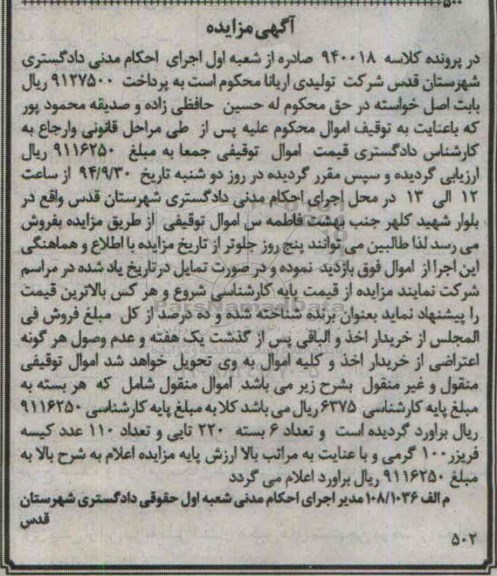 ۵۰۰
آگهی مزایده
در پرونده کلاسه ۹۴۰۰۱۸ صادره از شعبه اول اجرای احکام مدنی دادگستری
شهرستان قدس شرکت تولیدی اریانا محکوم است به پرداخت ۹۱۲۷۵۰۰ ریال
بابت اصل خواسته در حق محکوم له حسین حافظی زاده و صدیقه محمود پور
که باعنایت به توقیف اموال محکوم علیه پس از طی مراحل قانونی وارجاع به
کارشناس دادگستری قیمت اموال توقیفی جمعا به مبلغ ۹۱۱۶۲۵۰ ریال
ارزیابی گردیده و سپس مقرر گردیده در روز دو شنبه تاریخ ۹۴/۹/۳۰ از ساعت
۱۲ الی ۱۳ در محل اجرای احکام مدنی دادگستری شهرستان قدس واقع در
بلوار شهید کلهر جنب بهشت فاطمه س اموال توقیفی از طریق مزایده بفروش
می رسد لذا طالبین می توانند پنج روز جلوتر از تاریخ مزایده با اطلاع و هماهنگی
این اجرا از اموال فوق بازدید نموده و در صورت تمایل در تاریخ یاد شده در مراسم
شرکت نمایند مزایده از قیمت پایه کارشناسی شروع و هر کس بالاترین قیمت
را پیشنهاد نماید بعنوان برنده شناخته شده و ده درصد از کل مبلغ فروش فی
المجلس از خریدار اخذ و الباقی پس از گذشت یک هفته و عدم وصول هر گونه
اعتراضی از خریدار اخذ و کلیه اموال به وی تحویل خواهد شد اموال توقیفی
منقول و غیر منقول بشرح زیر می باشد اموال منقول شامل که هر بسته به
مبلغ پایه کارشناسی ۶۳۷۵ ریال می باشد کلا به مبلغ پایه کارشناسی ۹۱۱۶۲۵۰
ریال براورد گردیده است و تعداد ۶ بسته ۲۲۰ تایی و تعداد ۱۱۰ عدد کیسه
فریزر ۱۰۰ گرمی و با عنایت به مراتب بالا ارزش پایه مزایده اعلام به شرح بالا به
مبلغ ۹۱۱۶۲۵۰ ریال براورد اعلام می گردد
م الف ۱۰۸/۱۰۳۶ مدیر اجرای احکام مدنی شعبه اول حقوقی دادگستری شهرستان
قدس
۵۰۲